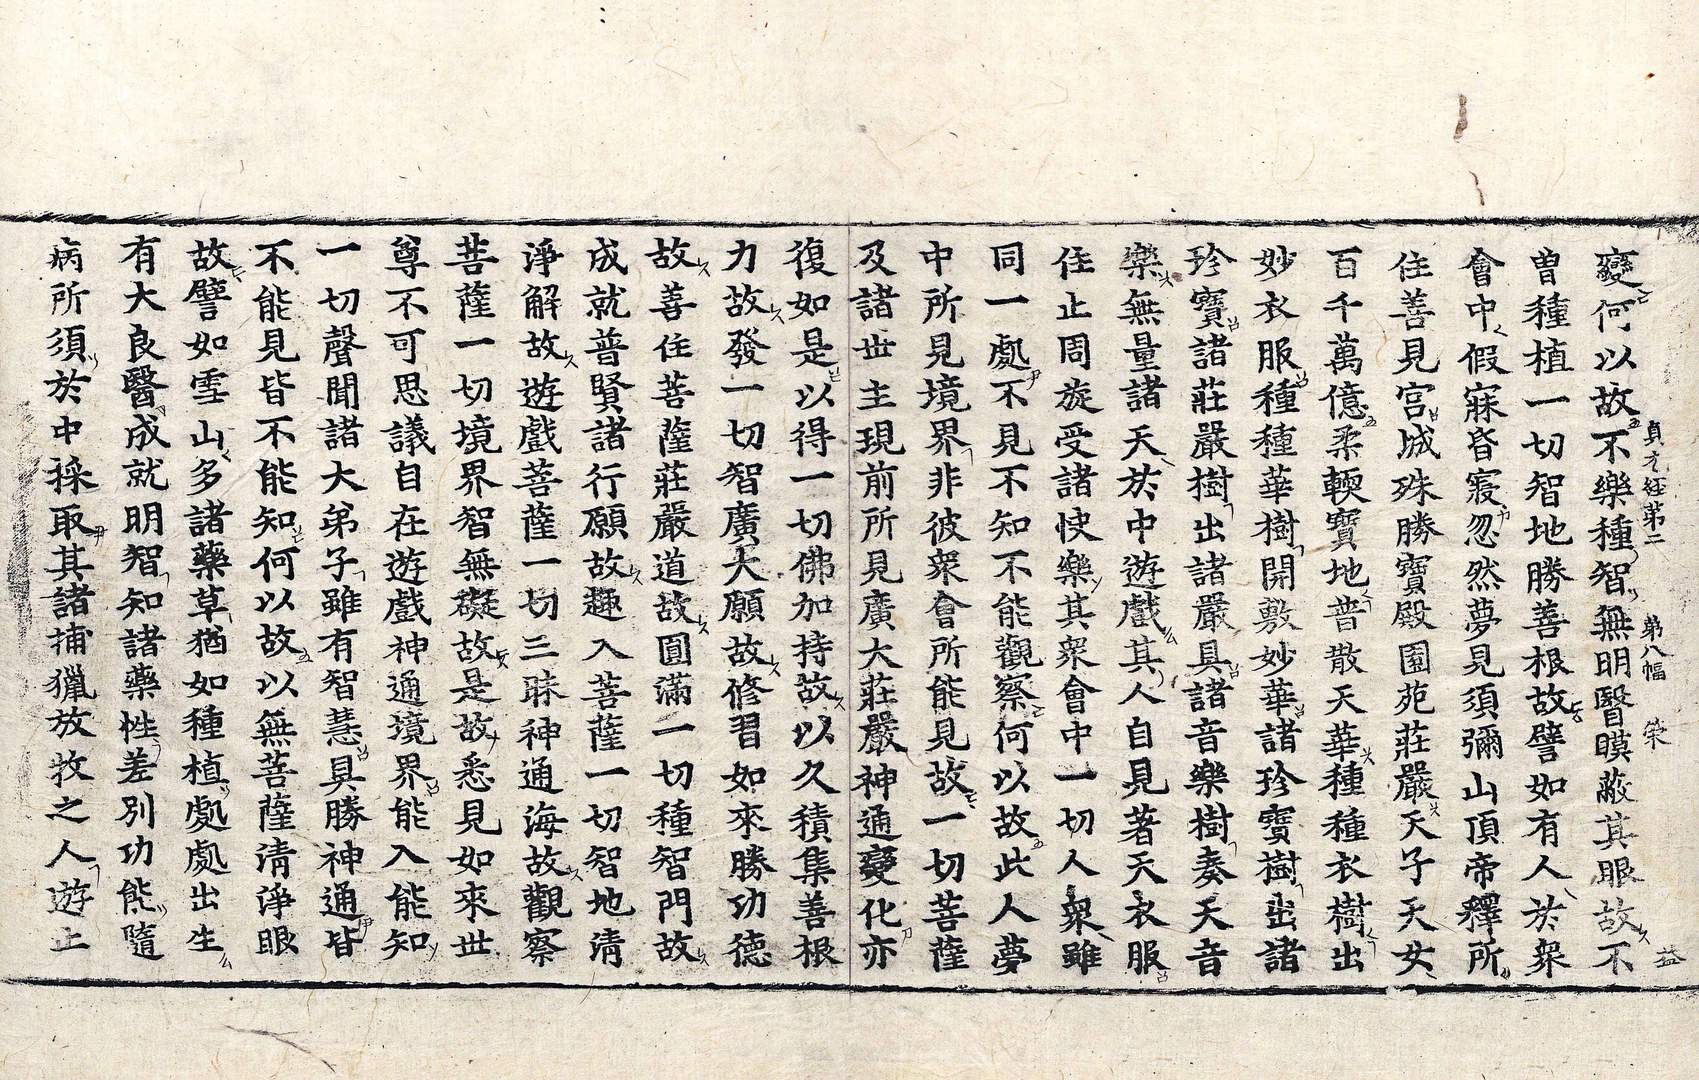 貞元經第二 第八幅 榮 益
變何以故不樂種智無明瞖瞙蔽其眼故不
曽種植一切智地勝善根故譬如有人於衆
會中假寐昏寢忽然夢見須彌山頂帝釋所
住善見宮城殊勝寶殿園苑莊嚴天子天女
百千萬億柔輭寶地普散天華種種衣樹出
妙衣服種種華樹開敷妙華諸珍寶樹出諸
珍寶諸莊嚴樹出諸嚴具諸音樂樹奏天音
樂無量諸天於中遊戲其人自見著天衣服
住止周旋受諸快樂其衆會中一切人衆雖
同一處不見不知不能觀察何以故此人夢
中所見境界非彼衆會所能見故一切菩薩
及諸世主現前所見廣大莊嚴神通變化亦
復如是以得一切佛加持故以久積集善根
力故發一切智廣大願故修習如來勝功德
故善住菩薩莊嚴道故圓滿一切種智門故
成就普賢諸行願故趣入菩薩一切智地清
淨解故遊戲菩薩一切三昧神通海故觀察
菩薩一切境界智無礙故是故悉見如來世
尊不可思議自在遊戲神通境界能入能知
一切聲聞諸大弟子雖有智慧具勝神通皆
不能見皆不能知何以故以無菩薩清淨眼
故譬如雪山多諸藥草猶如種植處處出生
有大良醫成就明智知諸藥性差別功能隨
病所須於中採取其諸捕獵放牧之人遊止